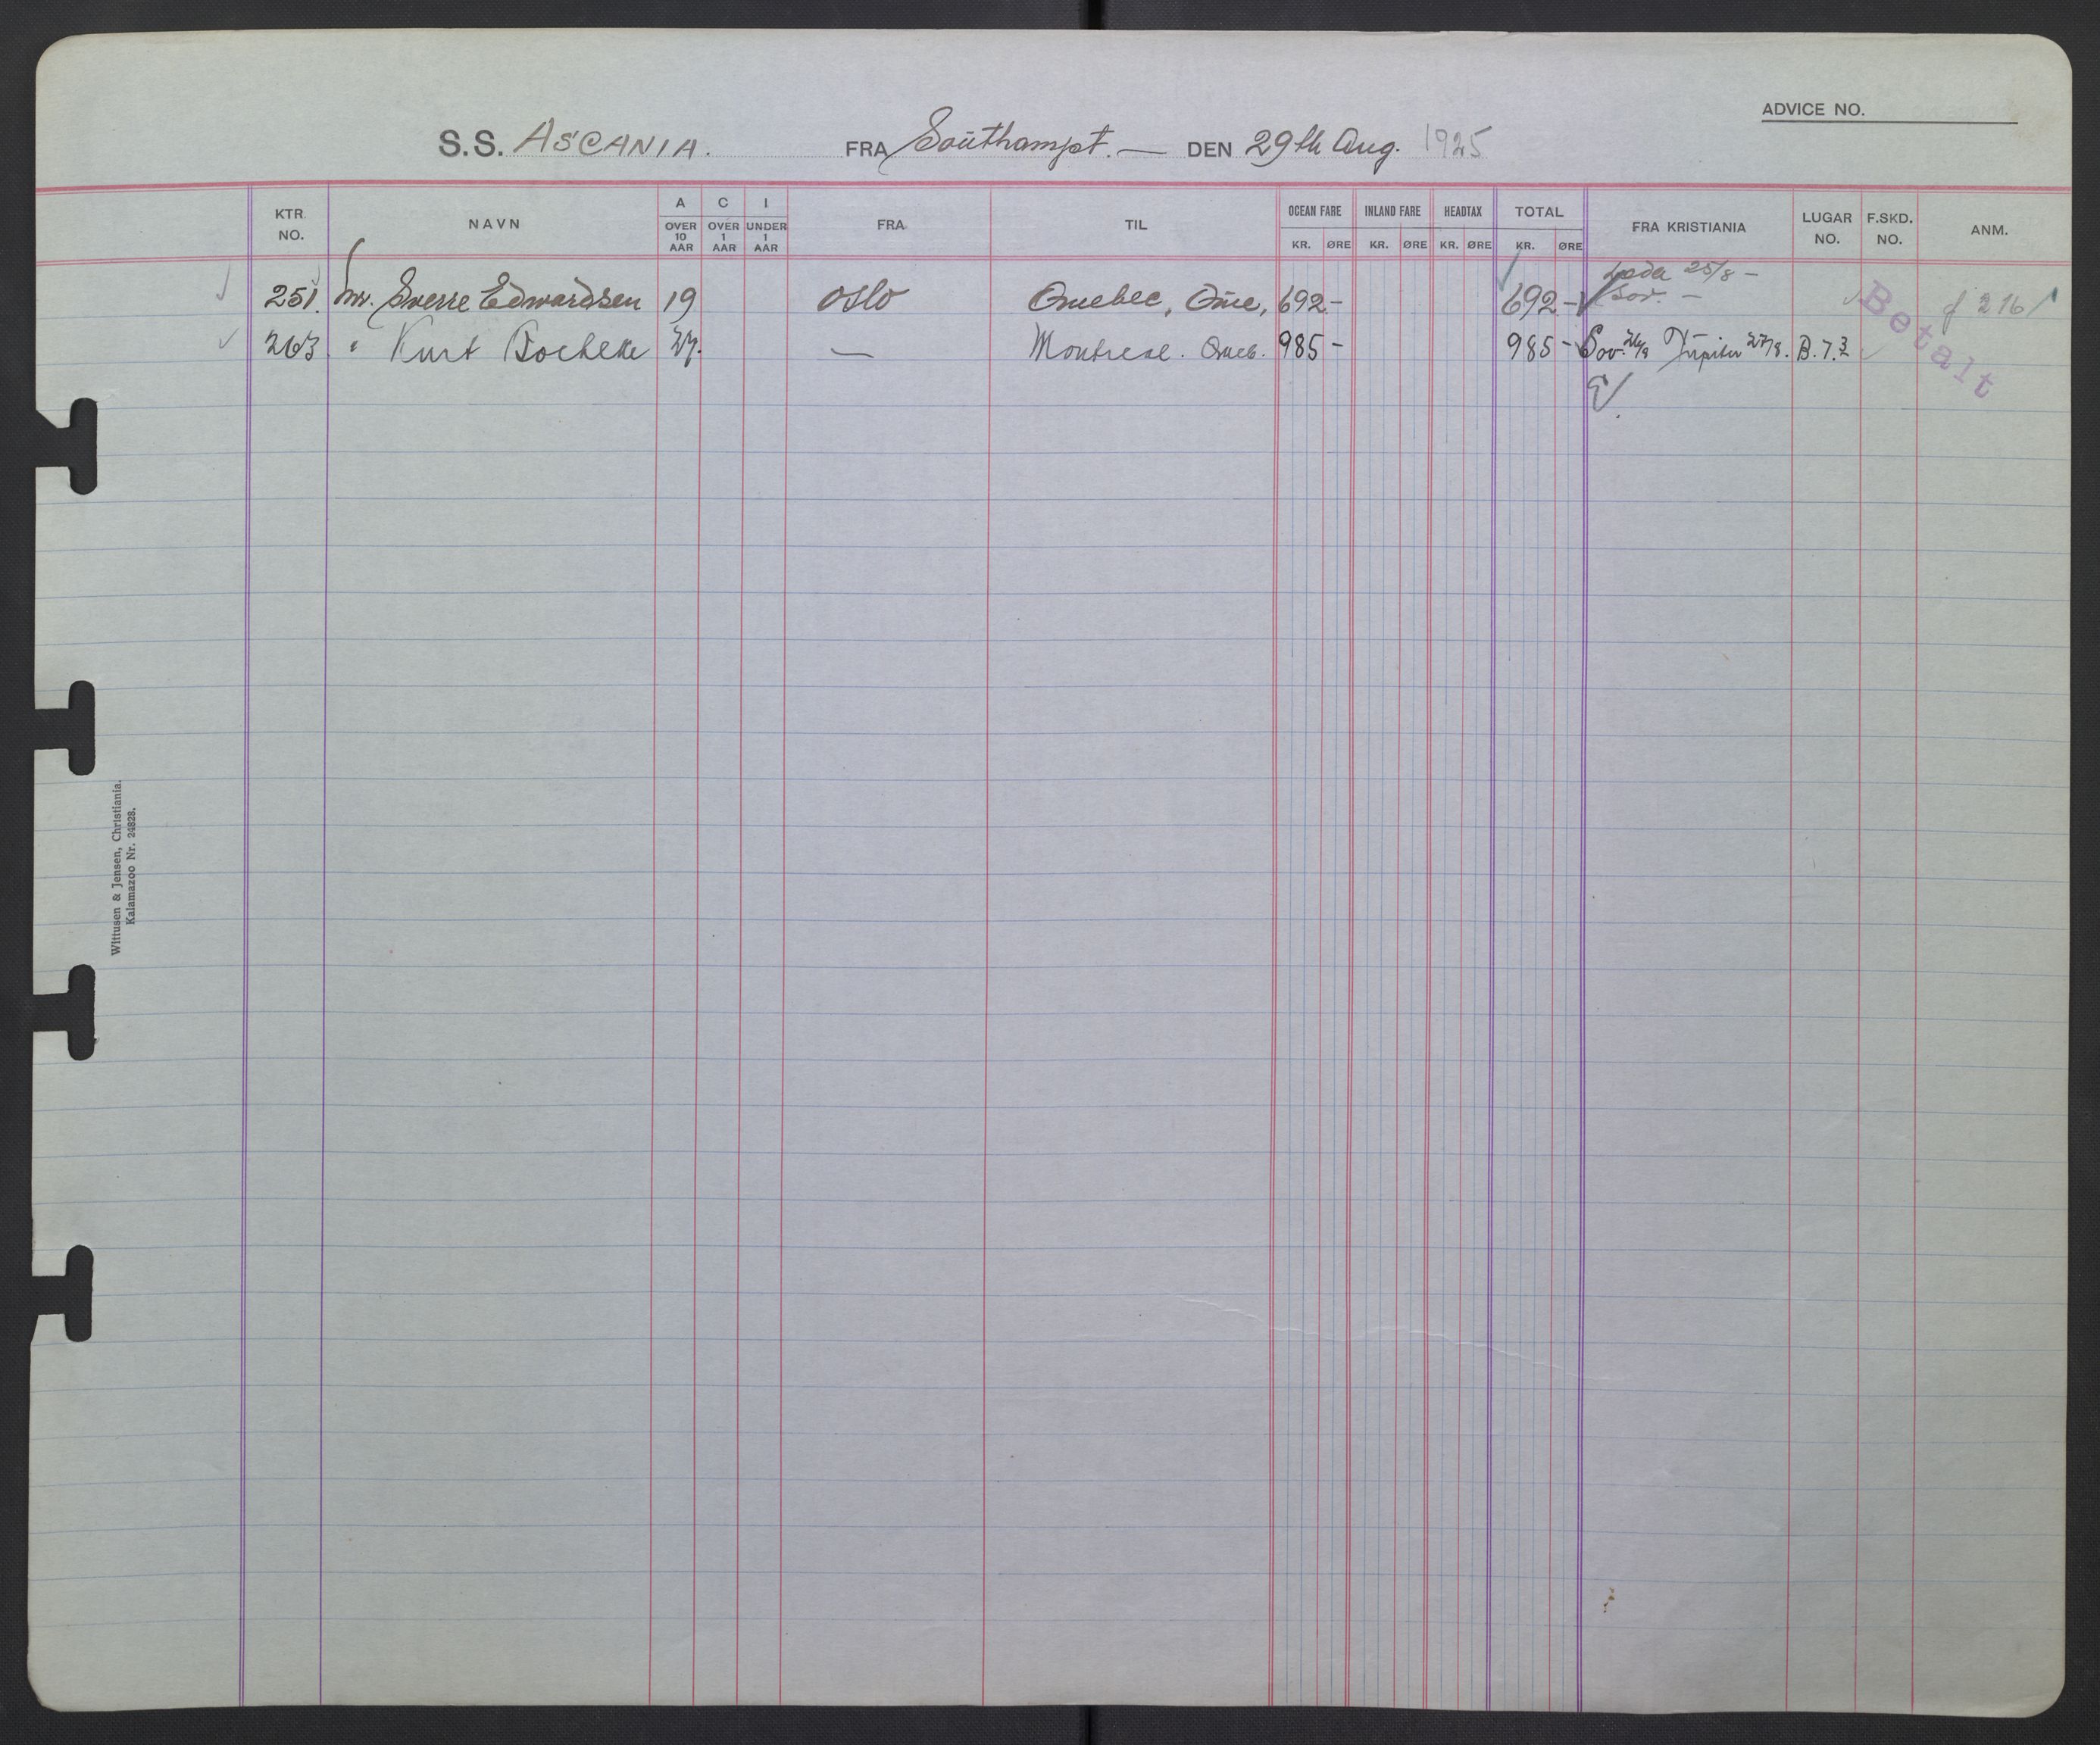 ADVICE NO.
S.S. ASCANIA. FRA Southampt. — DEN 29th Aug. 1925
KTR. NO. NAVN A OVER 10 AAR C OVER 1 AAR I UNDER 1 AAR FRA TIL OCEAN FARE KR. ØRE INLAND FARE KR. ØRE HEADTAX KR. ØRE TOTAL KR. ØRE FRA KRISTIANIA LUGAR NO. F.SKD. NO. ANM.
25/8 —
251. Mr. Sverre Edwardsen 19 OSLO Quebec, Que, 692.- 692-
263 " Kurt 27. — Montreal. Queb. 985- 985- Sov. 26/8 Jupiter 27/8. B.7.3
Betalt
Wittusen & Jensen, Christiania.
Kalamazoo Nr. 24828.